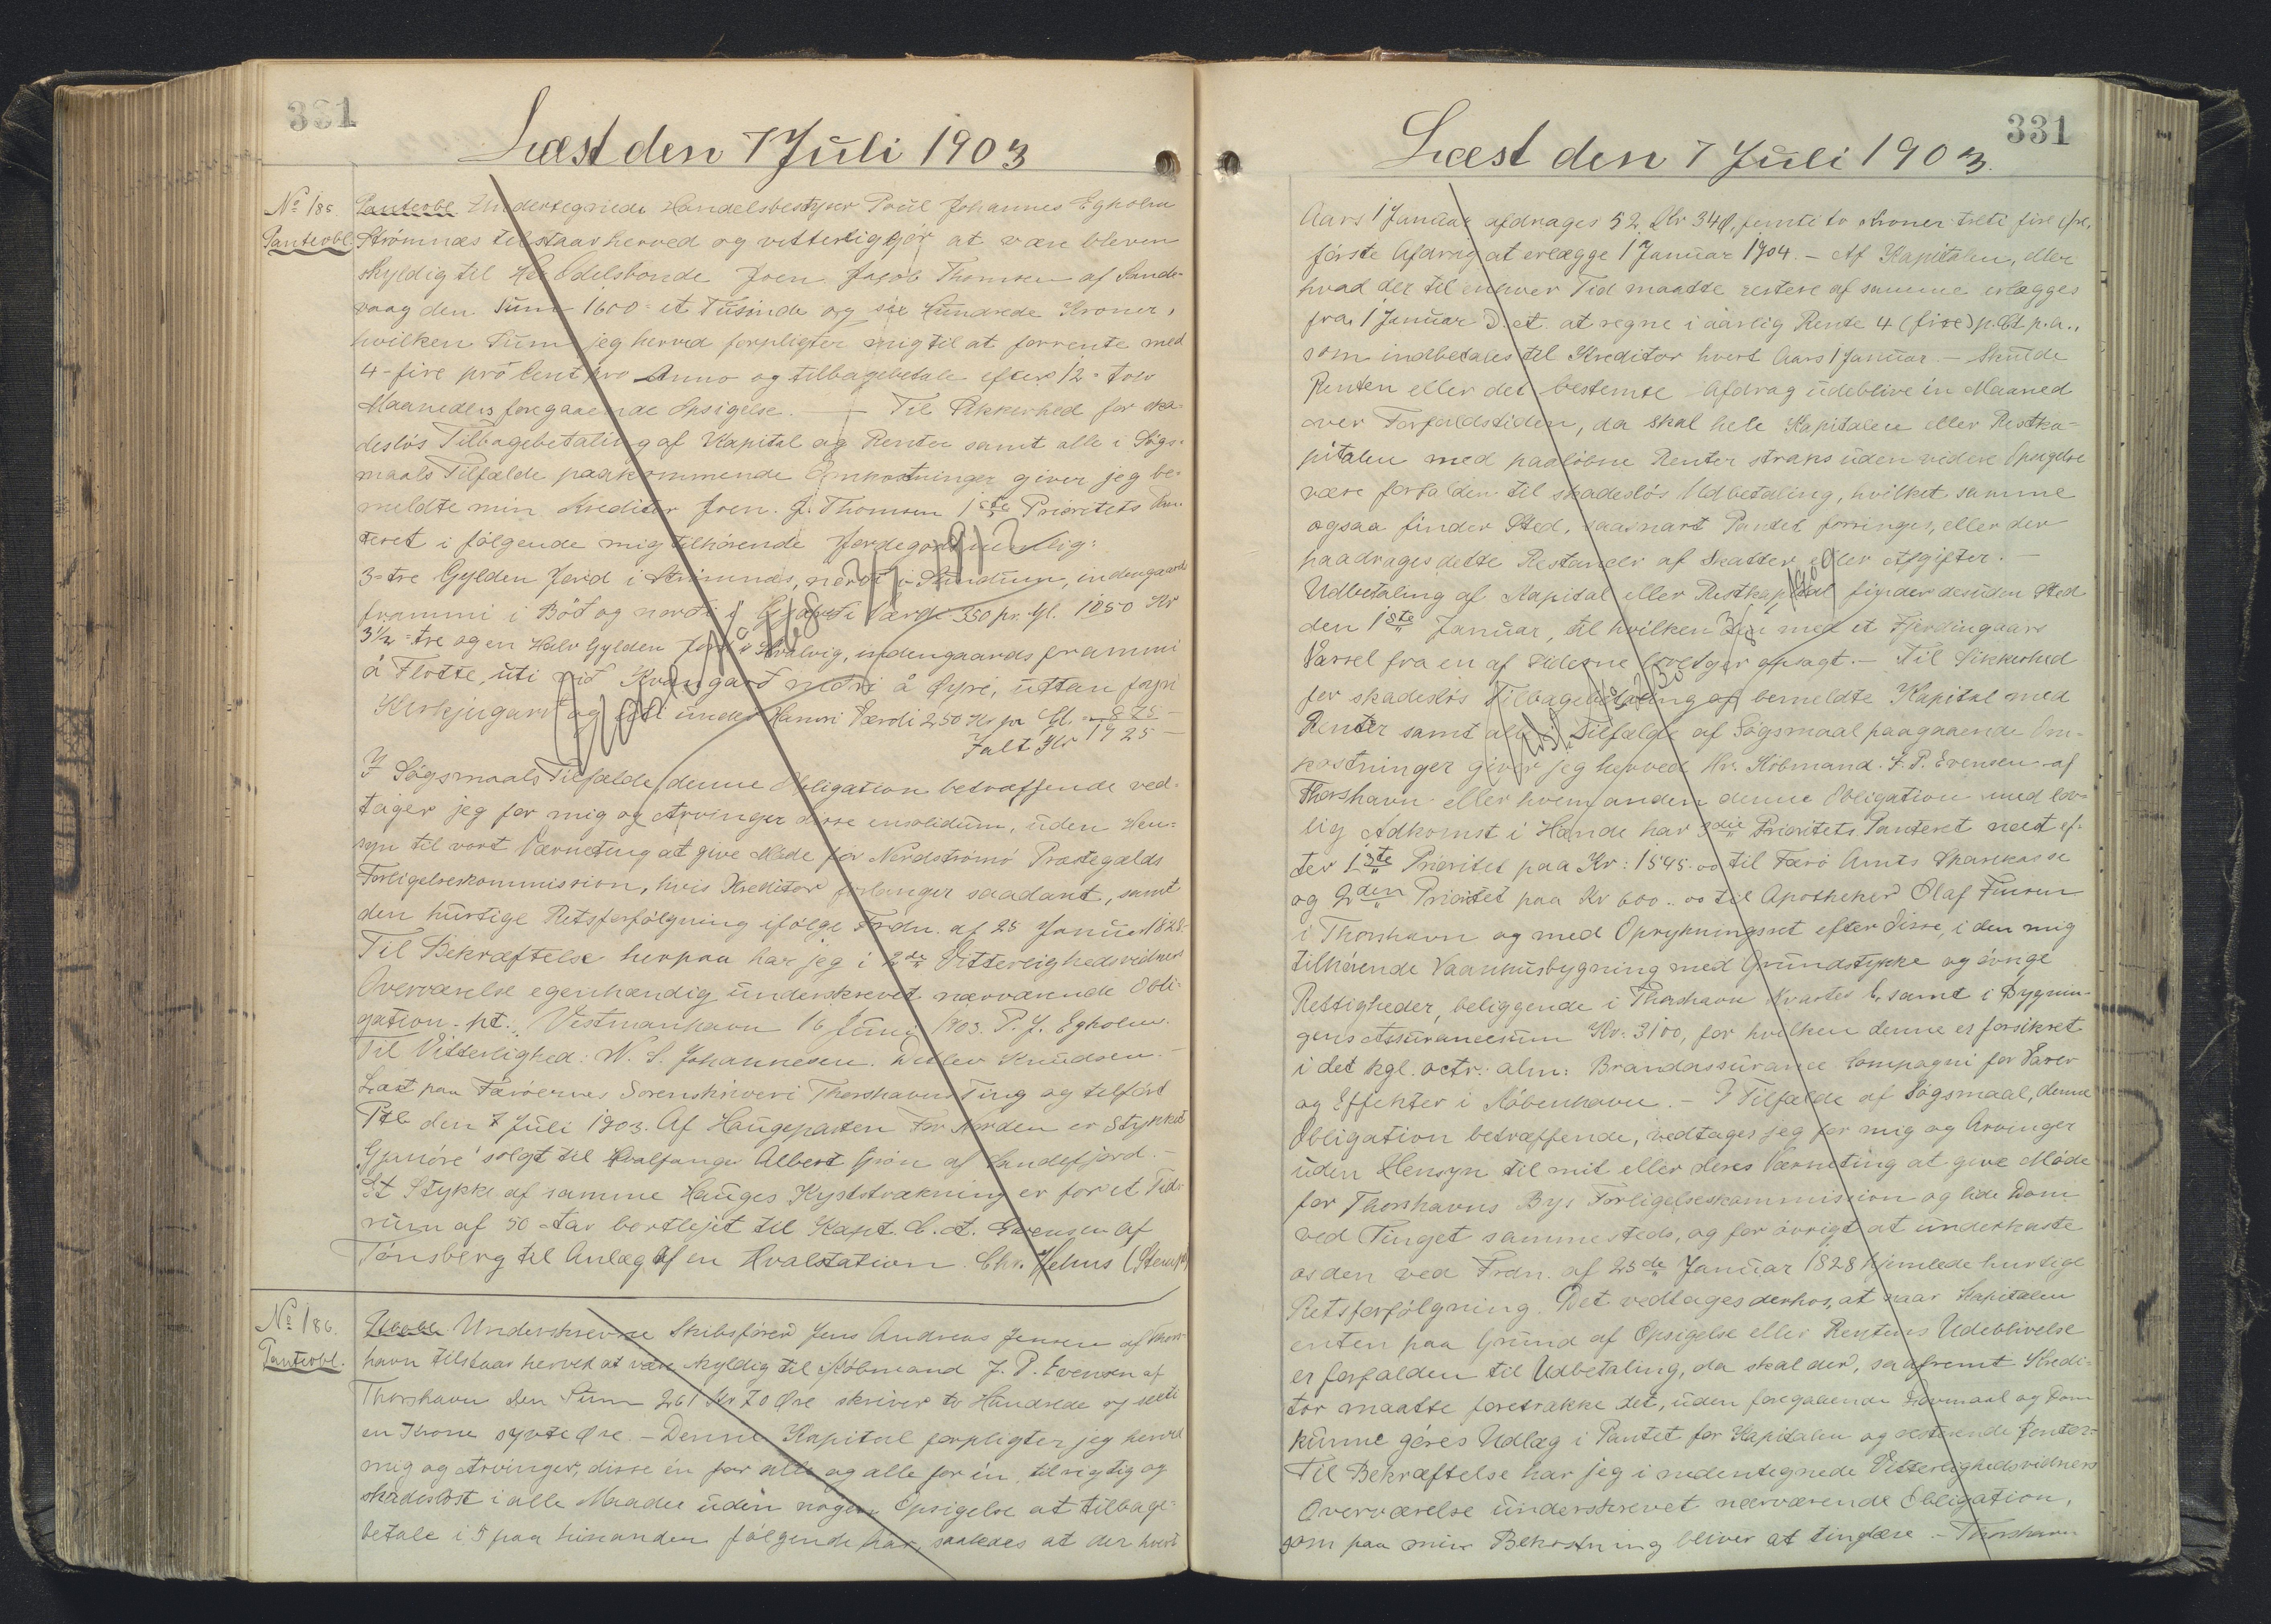 331
Læst den 7 Juli 1903
No 185.
Panteobl.
Panteobl. Undertegnede Handelsbestyrer Poul Johannes Egholm
Strömnæs tilstaar herved og vitterliggjör at være bleven
skyldig til Hr Odelsbonde Joen Jacob Thomsen af Sande-
vaag den Sum 1600 = et Tusinde og sex Hundrede Kroner,
hvilken Sum jeg herved forpligter mig til at forrente med
4 - fire pro Cent pro Anno og tilbagebetale efter 12 = tolv
Maaneders foregaaende Opsigelse. — Til Sikkerhed for ska-
deslös Tilbagebetaling af Kapital og Renter samt alle i Sögs-
maals Tilfælde paakommende Omkostninger giver jeg be-
meldte min Kreditor Joen. J. Thomsen 1ste Prioritets Pan-
teret i fölgende mig tilhörende Jordegods nemlig:
3 = tre Gylden Jord i Strömnæs, nordi i Sundum, indengaards
frammi i Böð og norði í Værdi 350 pr. Gl. 1050 Kr
3 1/2 = tre og en Halv Gylden Jord i Hvalvig, indengaards frammi
á Flötte, úti við Kvangarð norði á Öyri, uttan fyri
Kirkjugarð og under Hamri Værdi 250 Kr pr Gl. = 875 -
Ialt Kr 1925 -
I Sögsmaals Tilfælde denne Obligation betræffende ved-
tager jeg for mig og Arvinger disse insolidum, uden Hen-
syn til vort Værneting at give Möde for Nordströmö Præstegælds
Forligelseskommission, hvis Kreditor forlanger saadant, samt
den hurtige Retsforfölgning ifölge Frdn. af 25 Januar 1828.
Til Bekræftelse herpaa har jeg i 2de Vitterlighedsvidners
Overværelse egenhændig underskrevet nærværende Obli-
gation. pt. Vestmanhavn 16 Juni 1903. P. J. Egholm.
Til Vitterlighed: W. S. Johannesen. Detlev Knudsen. -
Læst paa Færöernes Sorenskriveri Thorshavns Ting og tilfört
Ptb den 7 Juli 1903. Af Haugeparten For Norden er Stykket
"Gjanöre" solgt til Hvalfanger Albert Grön af Sandefjord. -
Et Stykke af samme Hauges Kyststrækning er for et Tids-
rum af 50 Aar bortlejet til Kapt. C. A. Evensen af
Tönsberg til Anlæg af en Hvalstation. Chr. Jelnus (Stempl)
No 186.
Panteobl.
Underskrevne Skibsförer Jens Andreas Jensen af Thors-
havn tilstaar herved at være skyldig til Købmand J. P. Evensen af
Thorshavn den Sum 261 Kr 70 Øre skriver to Hundrede og seksti
en Krone syvti Øre. - Denne Kapital forpligter jeg herved
mig og Arvinger, disse én for alle og alle for én, til rigtig og
skadeslöst i alle Maader uden nogen Opsigelse at tilbage-
betale i 5 paa hinanden fölgende Aar, saaledes at der hvert
331
Læst den 7 Juli 1903.
Aars 1 Januar afdrages 52 Kr 34 Ø, femti to Kroner treti fire Øre,
förste Afdrag at erlægge 1 Januar 1904. - Af Kapitalen, eller
hvad der til enhver Tid maatte restere af samme erlægges
fra 1 Januar D. A. at regne i aarlig Rente 4 (fire) p. Ct p. a.,
som indbetales til Kreditor hvert Aars 1 Januar. - Skulde
Renten eller det bestemte Afdrag udeblive én Maaned
over Forfaldstiden, da skal hele Kapitalen eller Restka-
pitalen med paalöbne Renter straks uden videre Opsigelse
være forfalden til skadeslös Udbetaling, hvilket samme
ogsaa finder Sted, saasnart Pantet forringes, eller der
paadrages dette Restancer af Skatter eller Afgifter. -
Udbetaling af Kapital eller Restkapital finder desuden Sted
den 1ste Januar, til hvilken Tid med et Fjerdingaars
Varsel fra en af Siderne lovligen opsagt. - Til Sikkerhed
for skadeslös Tilbagebetaling af bemeldte Kapital med
Renter samt alle i Tilfælde af Sögsmaal paagaaende Om-
kostninger giver jeg herved Hr. Köbmand J. P. Evensen af
Thorshavn eller hvem anden denne Obligation med lov-
lig Adkomst i Hænde har 3die Prioritets Panteret næst ef-
ter 1ste Prioritet paa Kr: 1545.00 til Færö Amts Sparekasse
og 2den Prioritet paa Kr 600..00 til Apotheker Olaf Finsen
i Thorshavn og med Oprykningsret efter disse, i den mig
tilhörende Vaanhusbygning med Grundstykke og övrige
Rettigheder, beliggende i Thorshavn Kvarter C, samt i Bygnin-
gens Assurancesum Kr. 3100, for hvilken denne er forsikret
i det kgl. octr. alm: Brandassurance Compagni for Varer
og Effekter i Köbenhavn. - I Tilfælde af Sögsmaal, denne
Obligation betræffende, vedtages jeg for mig og Arvinger
uden Hensyn til mit eller deres Værneting at give Möde
for Thorshavns Bys Forligelseskommission og lide Dom
ved Tinget sammesteds, og for övrigt at underkaste
os den ved Frdn. af 25de Januar 1828 hjemlede hurtige
Retsforfölgning. Det vedtages derhos, at naar Kapitalen
enten paa Grund af Opsigelse eller Rentens Udeblivelse
er forfalden til Udbetaling, da skal der, saafremt Kredi-
tor maatte foretrække det, uden foregaaende Lovmaal og Dom
kunne göres Udlæg i Pantet for Kapitalen og resterende Renter.
Til Bekræftelse har jeg i nedentegnede Vitterlighedsvidners
Overværelse underskrevet nærværende Obligation,
som paa min Bekostning bliver at tinglæse. - Thorshavn